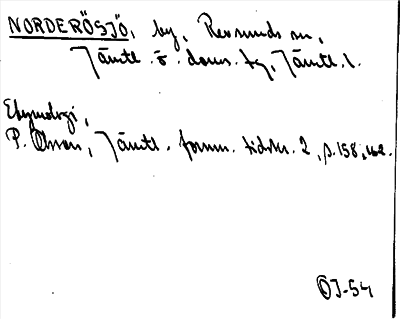 NORDERÖSJÖ, by, Revsunds sn,
Jämtl. ö. doms. tg, Jämtl. l.
Etymologi,
P. Olsson, Jämtl. fornm. tidskr. 2, s. 158, 162.
OJ-54